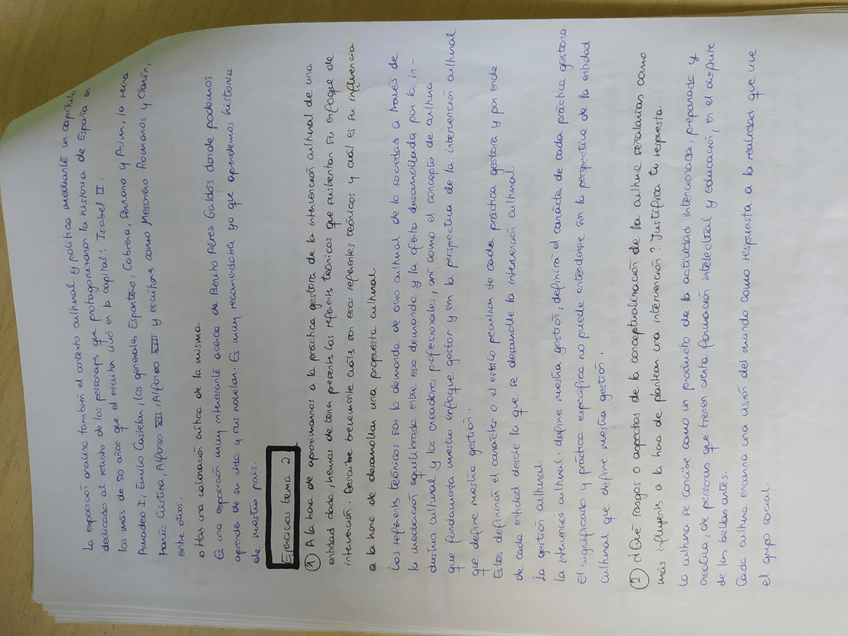 La exposición analiza también el contexto cultural y político mediante un capítulo
dedicado al retrato de los personajes que protagonizaron la historia de España en
los más de 50 años que el escritor vivió en la capital: Isabel II,
Amadeo I, Emilio Castelar, los generales Espartero, Cabrera, Serrano y Prim, la reina
María Cristina, Alfonso XII, Alfonso XIII y escritores como Mesonero Romanos y Clarín,
entre otros.
o Haz una valoración crítica de la misma.
Es una exposición muy interesante acerca de Benito Pérez Galdós donde podemos
aprender de su vida y sus novelas. Es muy recomendable ya que aprendemos historia
de nuestro país.
Ejercicios tema 2
① A la hora de aproximarnos a la práctica gestora de la intervención cultural de una
entidad dada, hemos de tener presente los referentes teóricos que sustentan su enfoque de
intervención. Describe brevemente cuáles son esos referentes teóricos y cuál es su influencia
a la hora de desarrollar una propuesta cultural.
Los referentes teóricos son la demanda de uso cultural de la sociedad a través de
la mediación equilibrada entre esa demanda y la oferta desarrollada por la in-
dustria cultural y los creadores profesionales, así como el concepto de cultura
que fundamenta nuestro enfoque gestor y son la perspectiva de la intervención cultural
que define nuestra gestión.
Estos, definirán el carácter o el estilo peculiar de cada práctica gestora y por ende
de cada entidad desde la que se desarrolle la intervención cultural.
La gestión cultural.
La intervención cultural: define nuestra gestión, definirá el carácter de cada práctica gestora
El significado y práctica específica no puede entenderse sin la perspectiva de la entidad
cultural que define nuestra gestión.
② ¿Qué rasgos o aspectos de la conceptualización de la cultura señalarías como
más influyentes a la hora de plantear una intervención? Justifica tu respuesta.
La cultura se concibe como un producto de la actividad intencionada, preparada y
creativa, de personas que tienen cierta formación intelectual y educación, en el disfrute
de las bellas artes.
Cada cultura encarna una visión del mundo como respuesta a la realidad que vive
el grupo social.